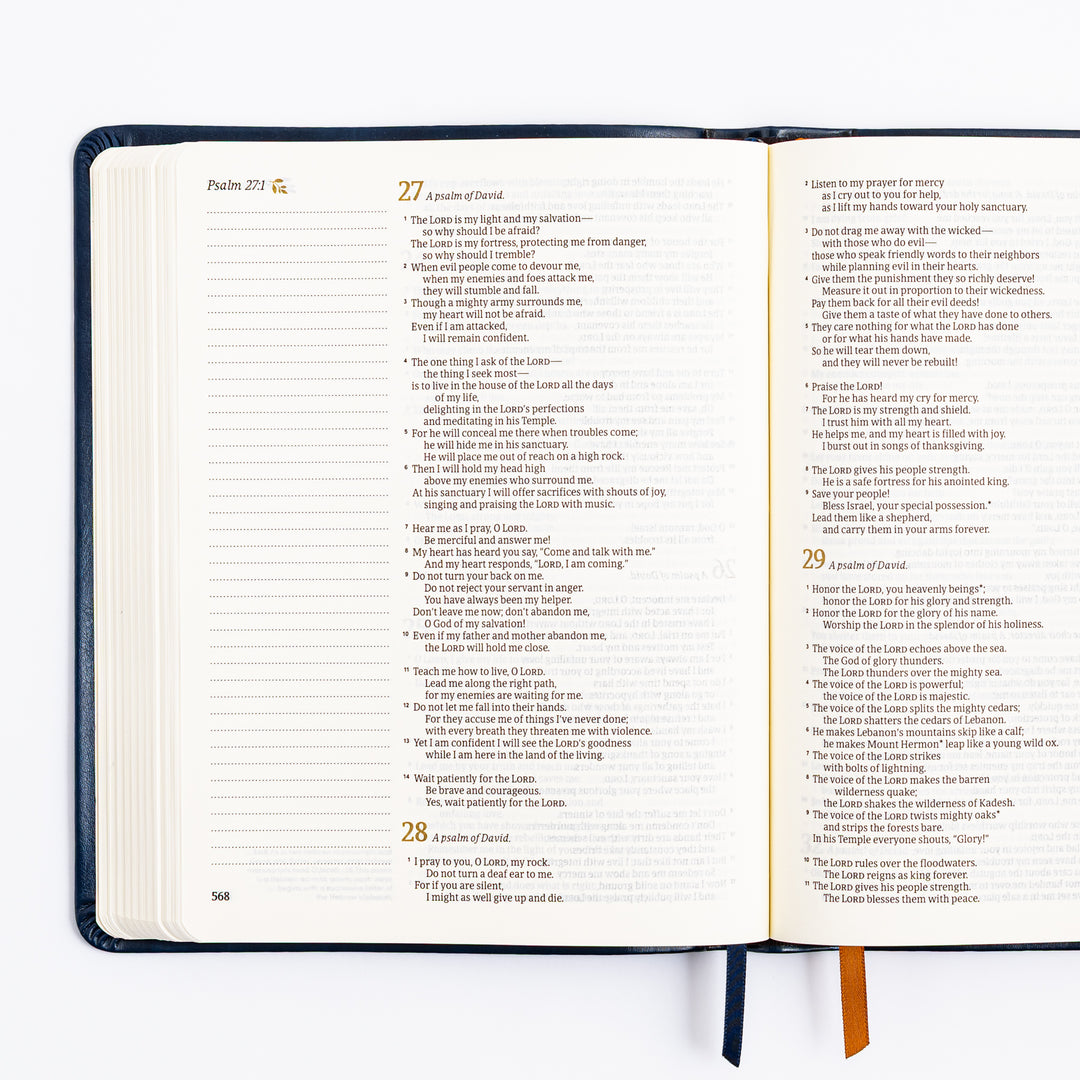 Psalm 27:1
27 A psalm of David.
1 The LORD is my light and my salvation—
so why should I be afraid?
The LORD is my fortress, protecting me from danger,
so why should I tremble?
2 When evil people come to devour me,
when my enemies and foes attack me,
they will stumble and fall.
3 Though a mighty army surrounds me,
my heart will not be afraid.
Even if I am attacked,
I will remain confident.
4 The one thing I ask of the LORD—
the thing I seek most—
is to live in the house of the LORD all the days
of my life,
delighting in the LORD's perfections
and meditating in his Temple.
5 For he will conceal me there when troubles come;
he will hide me in his sanctuary.
He will place me out of reach on a high rock.
6 Then I will hold my head high
above my enemies who surround me.
At his sanctuary I will offer sacrifices with shouts of joy,
singing and praising the LORD with music.
7 Hear me as I pray, O LORD.
Be merciful and answer me!
8 My heart has heard you say, “Come and talk with me.”
And my heart responds, “LORD, I am coming.”
9 Do not turn your back on me.
Do not reject your servant in anger.
You have always been my helper.
Don't leave me now; don't abandon me,
O God of my salvation!
10 Even if my father and mother abandon me,
the LORD will hold me close.
11 Teach me how to live, O LORD.
Lead me along the right path,
for my enemies are waiting for me.
12 Do not let me fall into their hands.
For they accuse me of things I've never done;
with every breath they threaten me with violence.
13 Yet I am confident I will see the LORD's goodness
while I am here in the land of the living.
14 Wait patiently for the LORD.
Be brave and courageous.
Yes, wait patiently for the LORD.
28 A psalm of David.
1 I pray to you, O LORD, my rock.
Do not turn a deaf ear to me.
For if you are silent,
I might as well give up and die.
568
2 Listen to my prayer for mercy
as I cry out to you for help,
as I lift my hands toward your holy sanctuary.
3 Do not drag me away with the wicked—
with those who do evil—
those who speak friendly words to their neighbors
while planning evil in their hearts.
4 Give them the punishment they so richly deserve!
Measure it out in proportion to their wickedness.
Pay them back for all their evil deeds!
Give them a taste of what they have done to others.
5 They care nothing for what the LORD has done
or for what his hands have made.
So he will tear them down,
and they will never be rebuilt!
6 Praise the LORD!
For he has heard my cry for mercy.
7 The LORD is my strength and shield.
I trust him with all my heart.
He helps me, and my heart is filled with joy.
I burst out in songs of thanksgiving.
8 The LORD gives his people strength.
He is a safe fortress for his anointed king.
9 Save your people!
Bless Israel, your special possession.*
Lead them like a shepherd,
and carry them in your arms forever.
29 A psalm of David.
1 Honor the LORD, you heavenly beings*;
honor the LORD for his glory and strength.
2 Honor the LORD for the glory of his name.
Worship the LORD in the splendor of his holiness.
3 The voice of the LORD echoes above the sea.
The God of glory thunders.
The LORD thunders over the mighty sea.
4 The voice of the LORD is powerful;
the voice of the LORD is majestic.
5 The voice of the LORD splits the mighty cedars;
the LORD shatters the cedars of Lebanon.
6 He makes Lebanon's mountains skip like a calf;
he makes Mount Hermon* leap like a young wild ox.
7 The voice of the LORD strikes
with bolts of lightning.
8 The voice of the LORD makes the barren
wilderness quake;
the LORD shakes the wilderness of Kadesh.
9 The voice of the LORD twists mighty oaks*
and strips the forests bare.
In his Temple everyone shouts, “Glory!”
10 The LORD rules over the floodwaters.
The LORD reigns as king forever.
11 The LORD gives his people strength.
The LORD blesses them with peace.